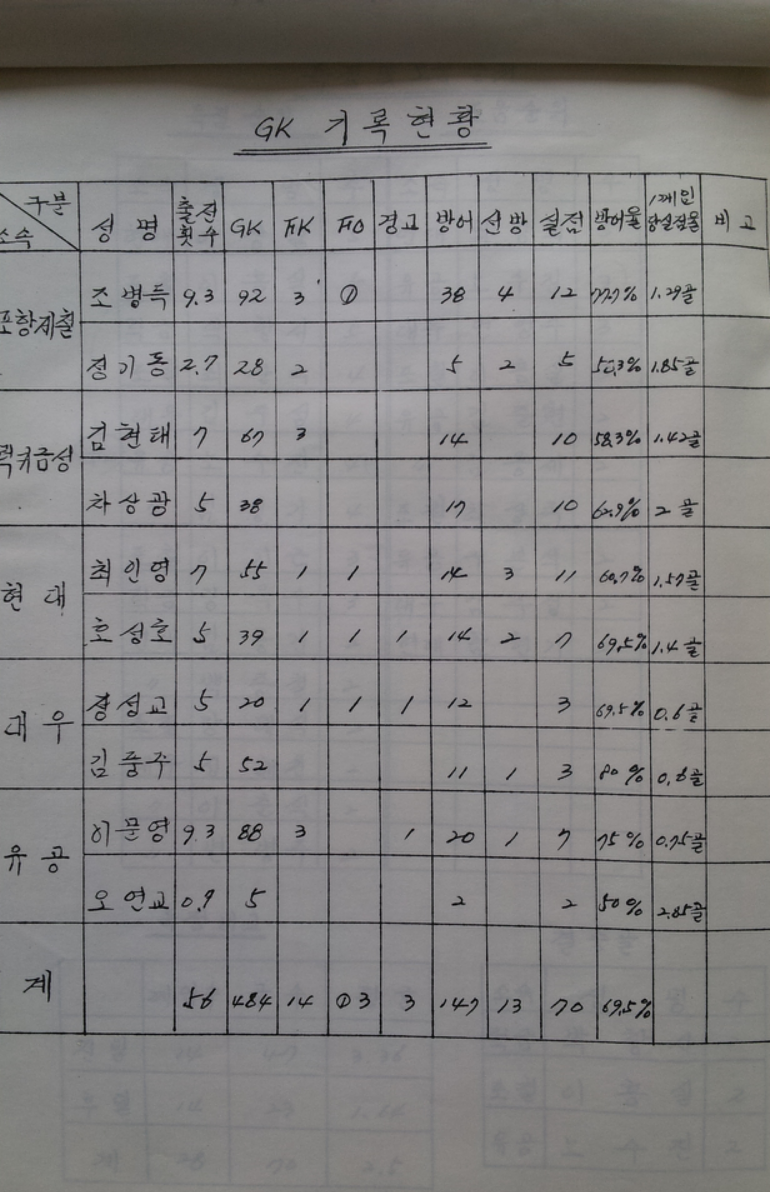 GK 기록현황
구분
소속
성 명 출전횟수 GK FK FO 경고 방어 선방 실점 방어율 1게임당실점율 비고
포항제철
조병득 9.3 92 3 ① 38 4 12 77.7% 1.29골
정기동 2.7 28 2 5 2 5 58.3% 1.85골
럭키금성
김현태 7 67 3 14 10 58.3% 1.42골
차상광 5 38 17 10 62.9% 2골
현대
최인영 7 55 1 1 14 3 11 60.7% 1.57골
호성호 5 39 1 1 1 14 2 7 69.5% 1.4골
대우
장성교 5 20 1 1 1 12 3 69.5% 0.6골
김풍주 5 52 11 1 3 80% 0.6골
유공
이문영 9.3 88 3 1 20 1 7 75% 0.75골
오연교 0.7 5 2 2 50% 2.85골
계 56 484 14 ①3 3 147 13 70 69.5%